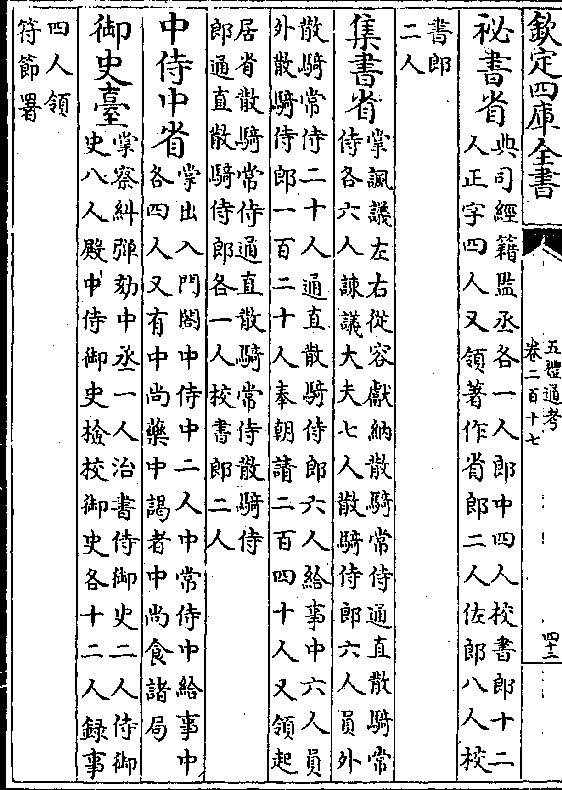 欽定四庫全書
五禮通考
卷二百十七
四十三
祕書省
典司經籍監丞各一人郎中四人校書郎十二
人正字四人又領著作省郎二人佐郎八人校
書郎
二人
集書省
掌諷議左右從容獻納散騎常侍通直散騎常
侍各六人諫議大夫七人散騎侍郎六人員外
散騎常侍二十人通直散騎侍郎六人給事中六人員
外散騎侍郎一百二十人奉朝請二百四十人又領起
居省散騎常侍通直散騎常侍散騎侍
郎通直散騎侍郎各一人校書郎二人
中侍中省
掌出入門閤中侍中二人中常侍中給事中
各四人又有中尚藥中謁者中尚食諸局
御史臺
掌察糾彈劾中丞一人治書侍御史二人侍御
史八人殿中侍御史檢校御史各十二人録事
四人領
符節署